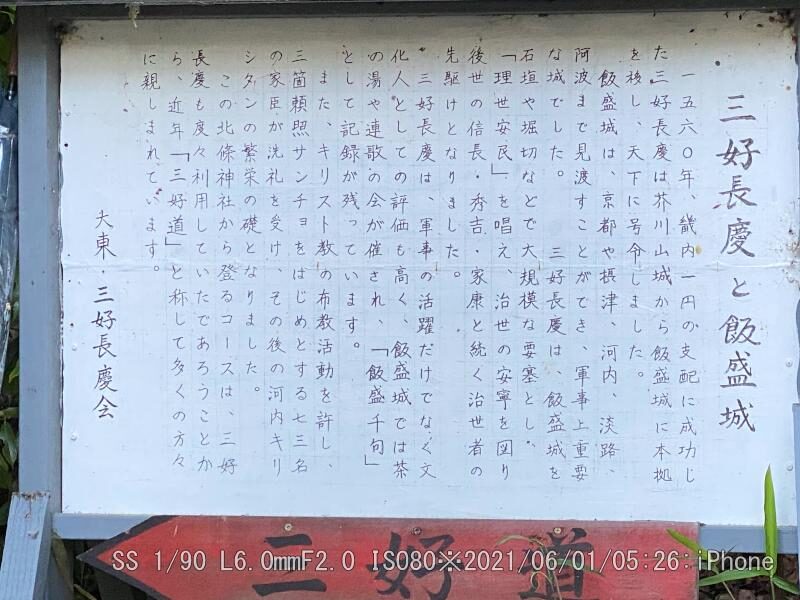 三好長慶と飯盛城
一五六〇年、畿内一円の支配に成功じ
た三好長慶は芥川山城から飯盛城に本拠
を移し、天下に号令しました。
飯盛城は、京都や摂津、河内、淡路、
阿波まで見渡すことができ、軍事上重要
な城でした。 三好長慶は、飯盛城を
石垣や堀切などで大規模な要塞とし、
「理世安民」を唱え、治世の安寧を図り
後世の信長・秀吉・家康と続く治世者の
先駆けとなりました。
三好長慶は、軍事の活躍だけでなく文
化人としての評価も高く、飯盛城では茶
の湯や連歌の会が催され、「飯盛千句」
として記録が残っています。
また、キリスト教の布教活動を許し、
三箇頼照サンチョをはじめとする七三名
の家臣が洗礼を受け、その後の河内キリ
シタンの繁栄の礎となりました。
この北條神社から登るコースは、三好
長慶も度々利用していたであろうことか
ら、近年「三好道」と称して多くの方々
に親しまれています。
大東・三好長慶会
三好道
SS 1/90 L6.0mmF2.0 ISO80※2021/06/01/05:26:iPhone